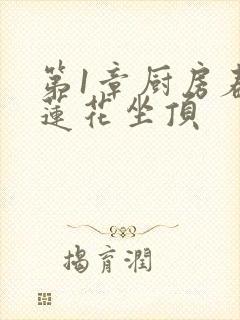 第1章厨房春
莲花坐顶
揭育潤